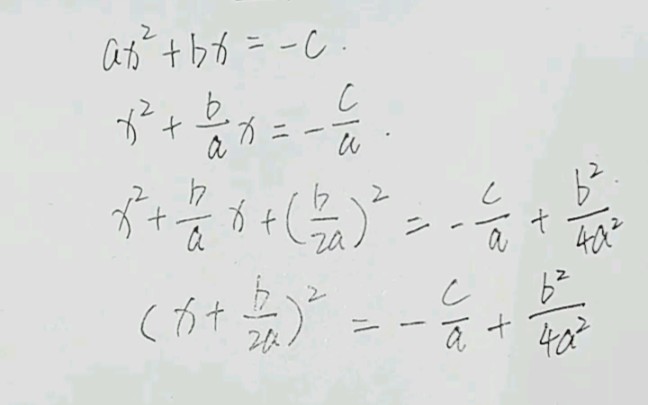 ax² + bx = -c.
x² + b/a x = - c/a.
x² + b/a x + (b/2a)² = - c/a + b²/4a²
(x + b/2a)² = - c/a + b²/4a²